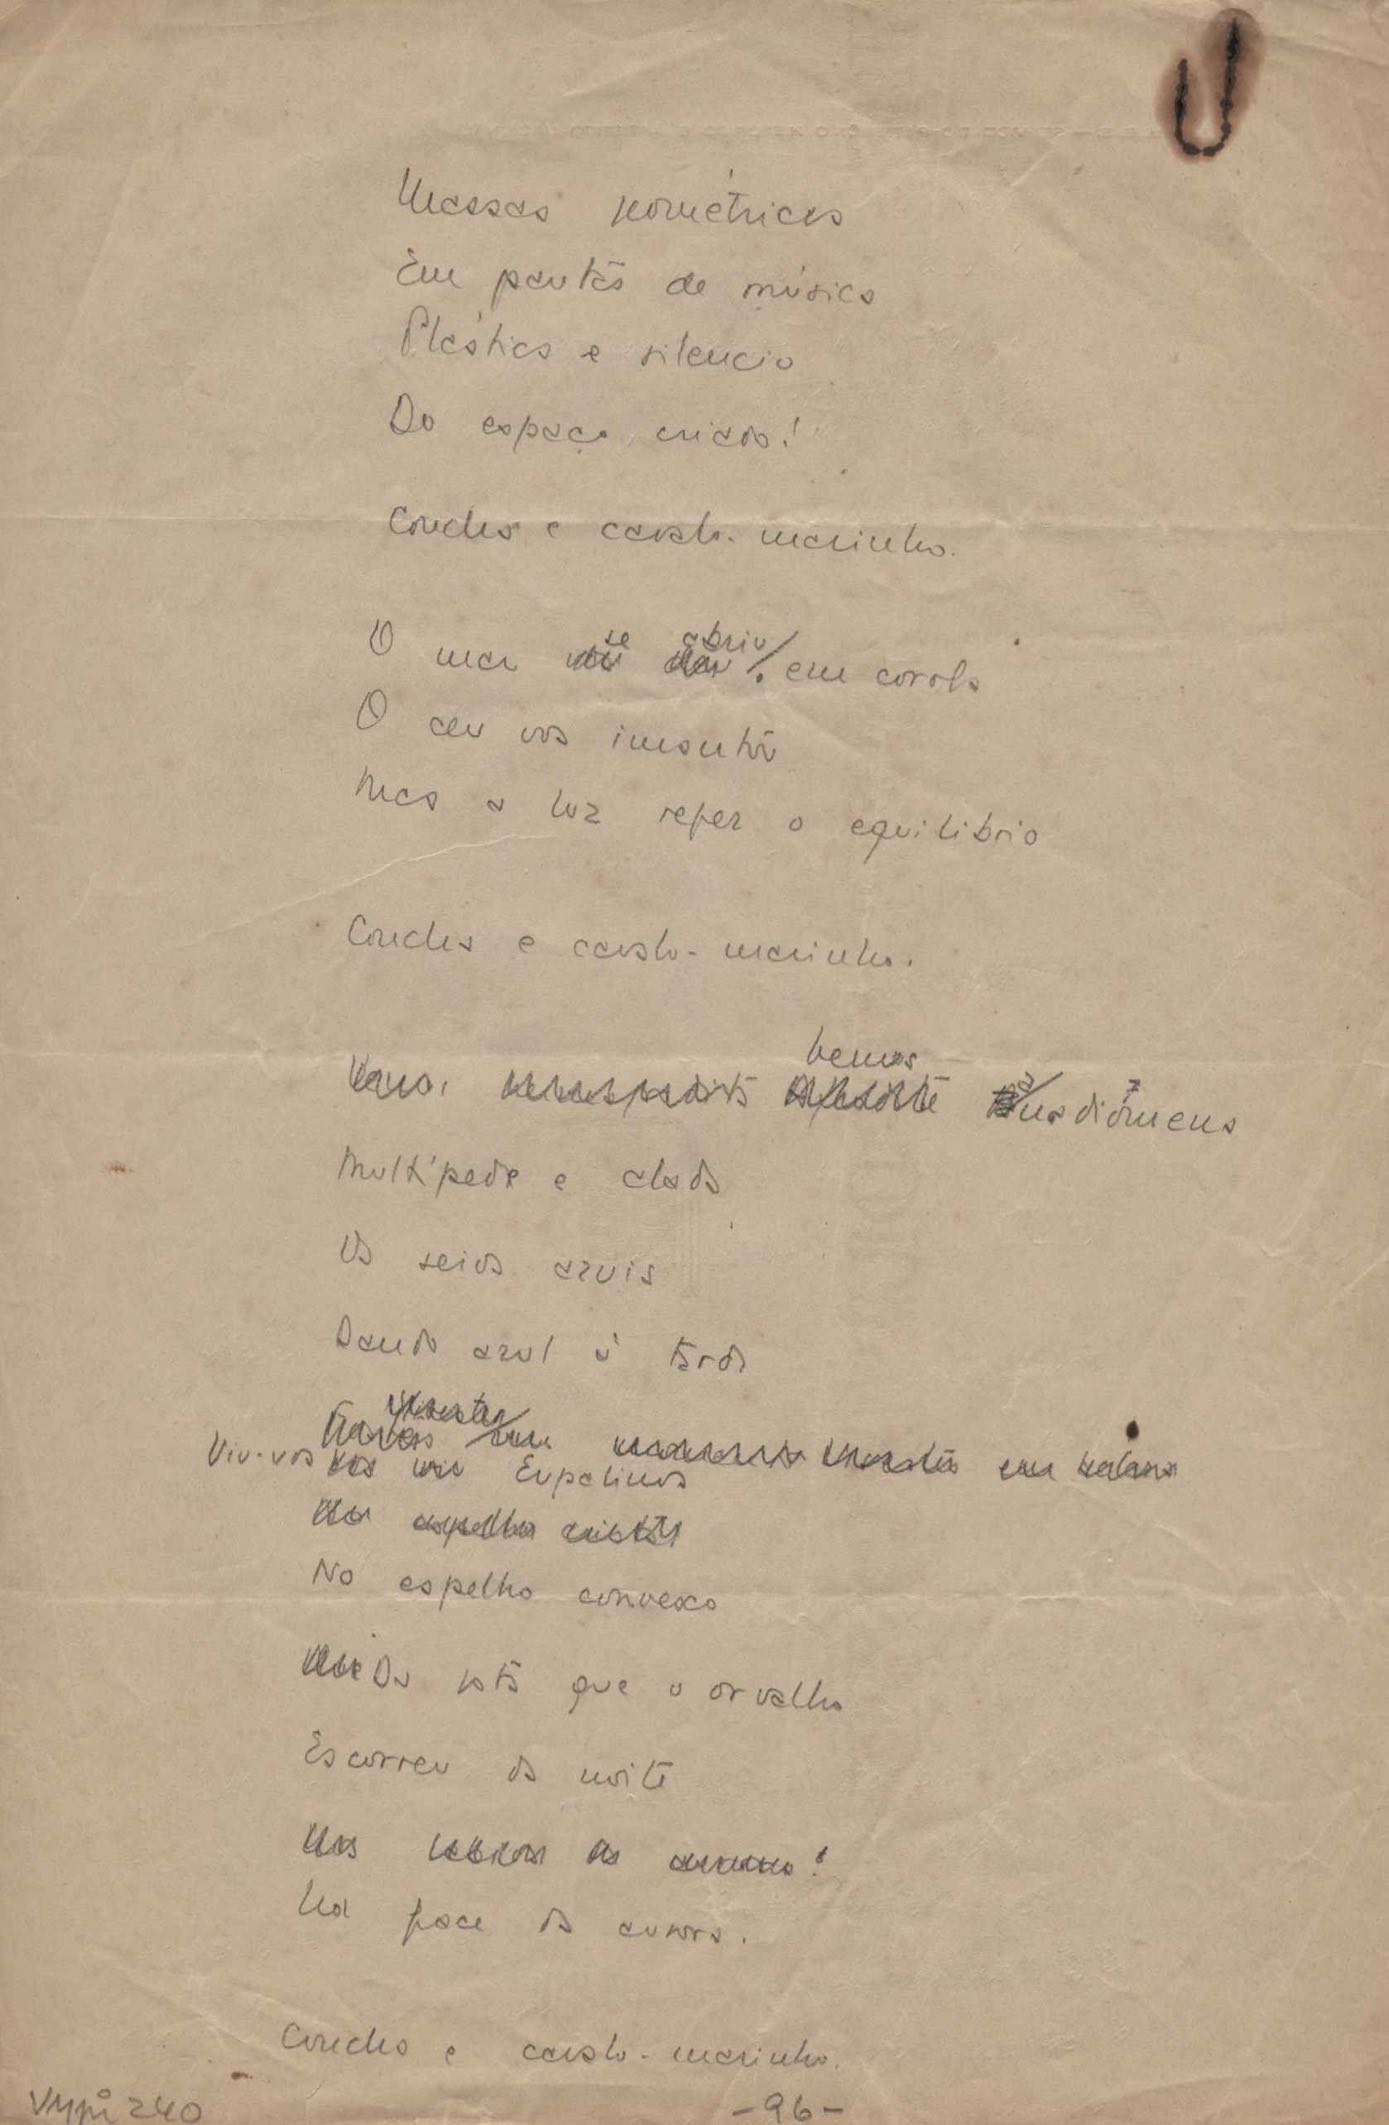 Massas geométricas
Em pautas de música
Plástica e silencio
Do espaço criado!
Concha e cavalo-marinho.
se abriu
O mar em corola
O ceu vos imantou
Mas a luz refez o equilibrio
Concha e cavalo-marinho.
Venus
anadiómena
Multípede e alada
Os seios azuis
Dando azul à tarde
Viu-vos Eupalinos
No espelho convexo
Da gota que o orvalho
Escorreu da noite
Na face da aurora.
Concha e cavalo-marinho.
VMpi 240
-96-